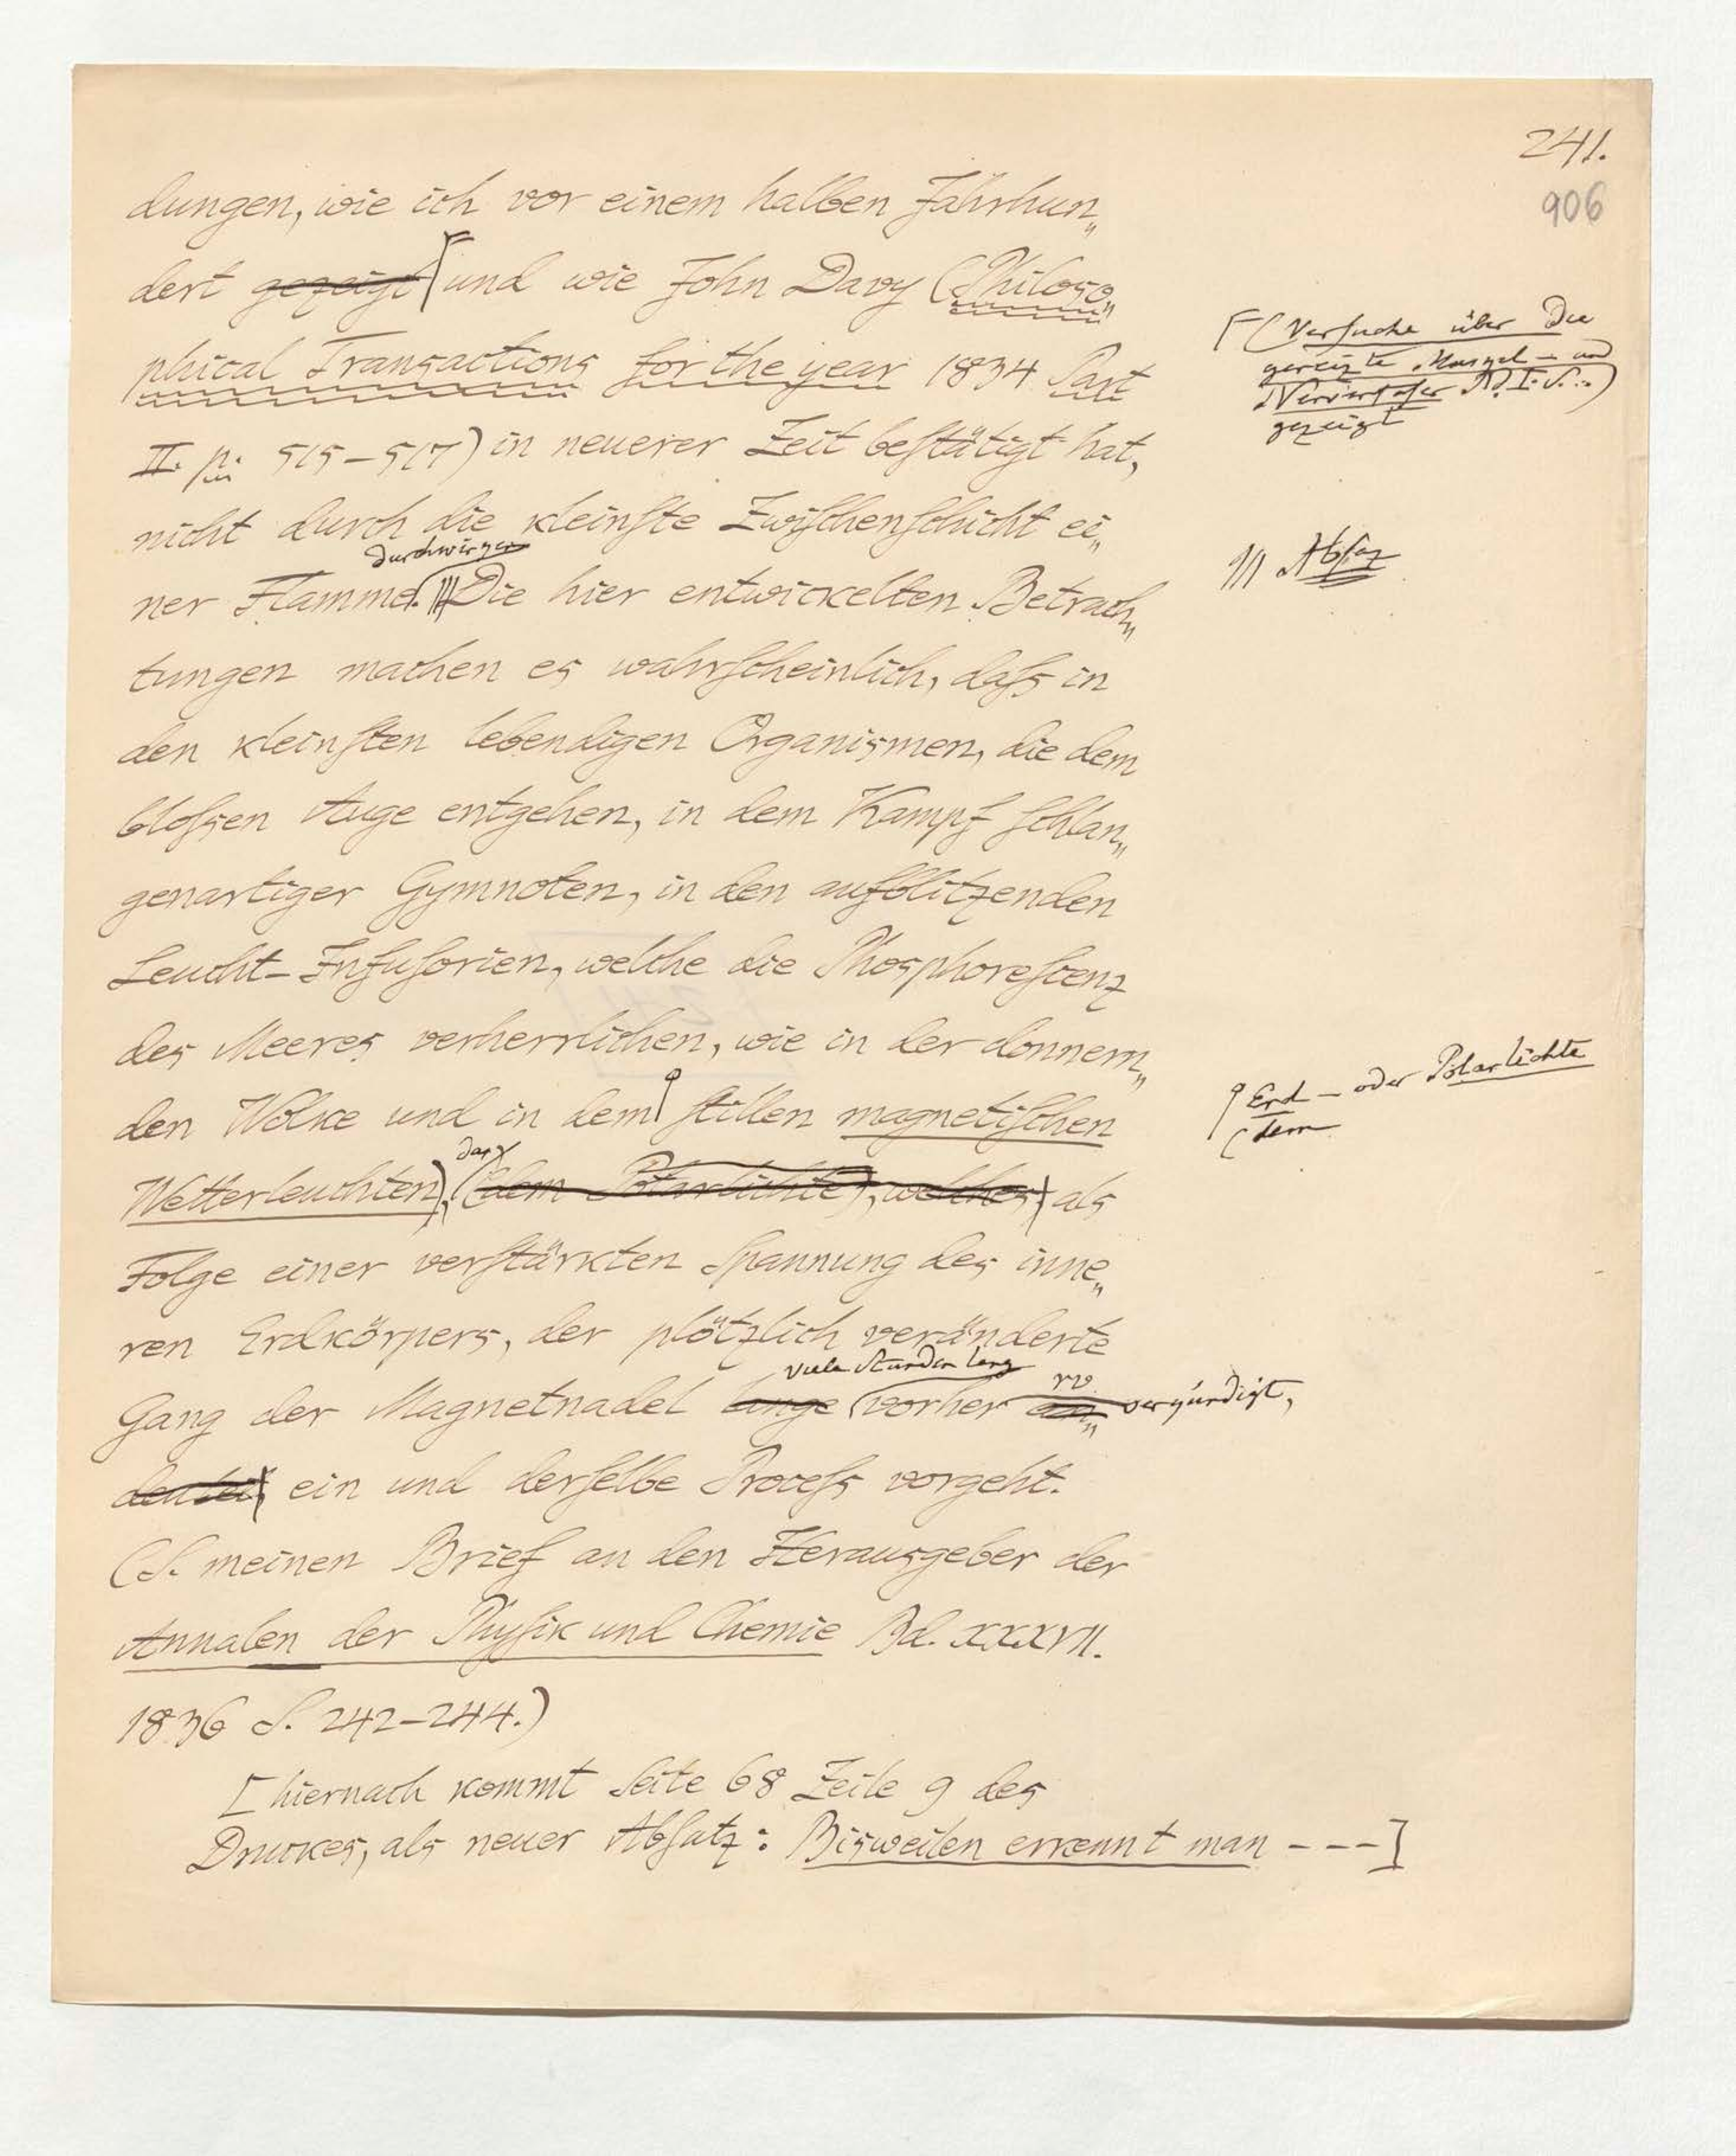 241.
906
dungen, wie ich vor einem halben Jahrhun„
dert gezeigt ⌈ und wie John Davy (Philoso„
phical Transactions for the year 1834 Part
II. p. 515–517) in neuerer Zeit beſtätigt hat,
nicht durch die kleinſte Zwiſchenſchicht ei„
durchwirken
ner Flamme. ||| Die hier entwickelten Betrach„
tungen machen es wahrſcheinlich, daſs in
den kleinſten lebendigen Organismen, die dem
bloſsen Auge entgehen, in dem Kampf ſchlan„
genartiger Gymnoten, in den aufblitzenden
Leucht-Infuſorien, welche die Phosphoreſcenz
des Meeres verherrlichen, wie in der donnern„
den Wolke und in dem ſtillen magnetiſchen
das
Wetterleuchten), (dem Polarlichte), welches als
Folge einer verſtärkten Spannung des inne„
ren Erdkörpers, der plötzlich veränderte
viele Stunden lang
Gang der Magnetnadel lange vorher an„ verkündigt,
deutet, ein und derſelbe Proceſs vorgeht.
(S. meinen Brief an den Herausgeber der
Annalen der Phyſik und Chemie Bd. XXXVII.
1836 S. 242–244.)
[hiernach kommt Seite 68 Zeile 9 des
Druckes, als neuer Abſatz: Bisweilen erkennt man ---]
⌈ (Verſuche über die
gereizte Muskel- und
Nervenfaſer Bd. I. S. ..)
gezeigt
||| Abſaz
Erd- oder Polarlichte
(dem